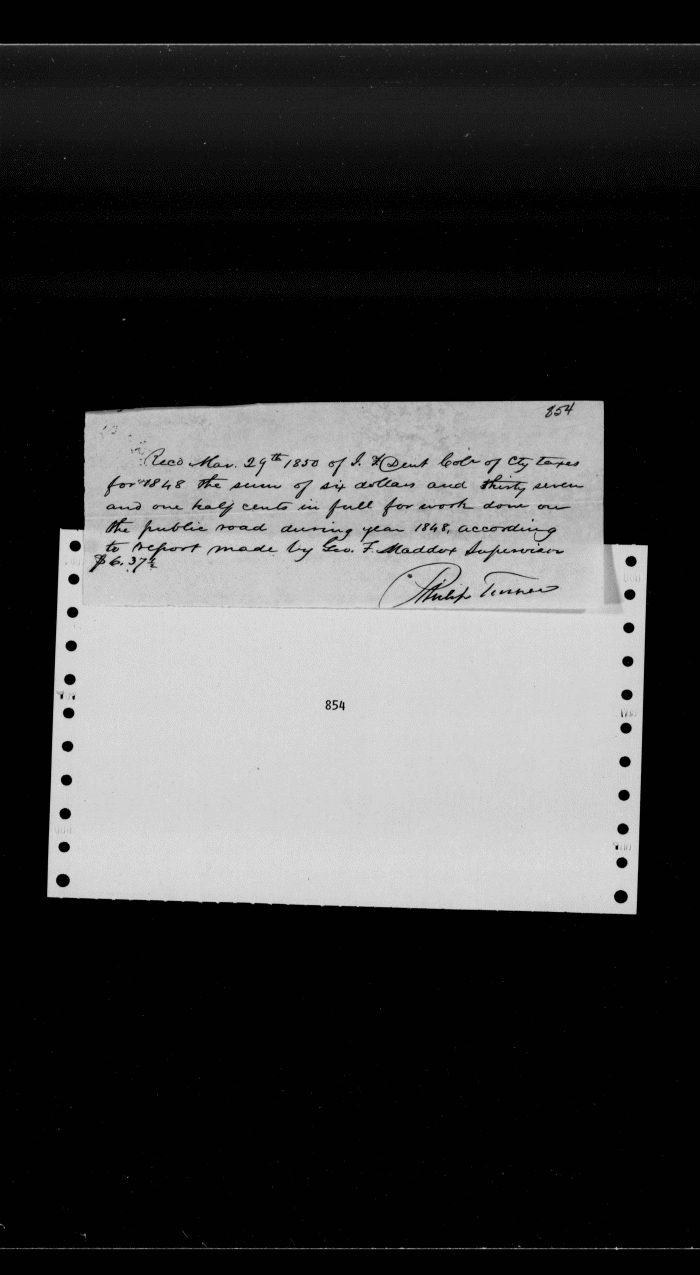 854
Recd Mar. 29th 1850 of J. F Dent Colr of Cty taxes
for 1848 the sum of six dollars and thirty seven
and one half cents in full for work done on
the public road during year 1848, according
to report made by Geo. F. Maddox Supervisor
$6.37½
Philip Turner
854